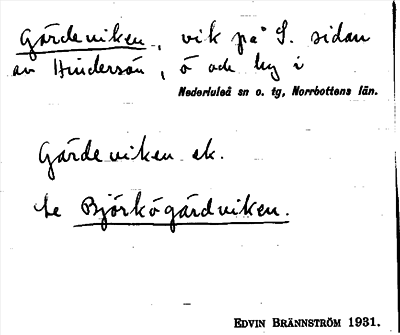 Gårdeviken, vik på S. sidan
av Hindersön, ö och by i
Nederluleå sn o. tg, Norrbottens län.
Gårdeviken ek.
Se Björkögårdviken.
EDVIN BRÄNNSTRÖM 1931.